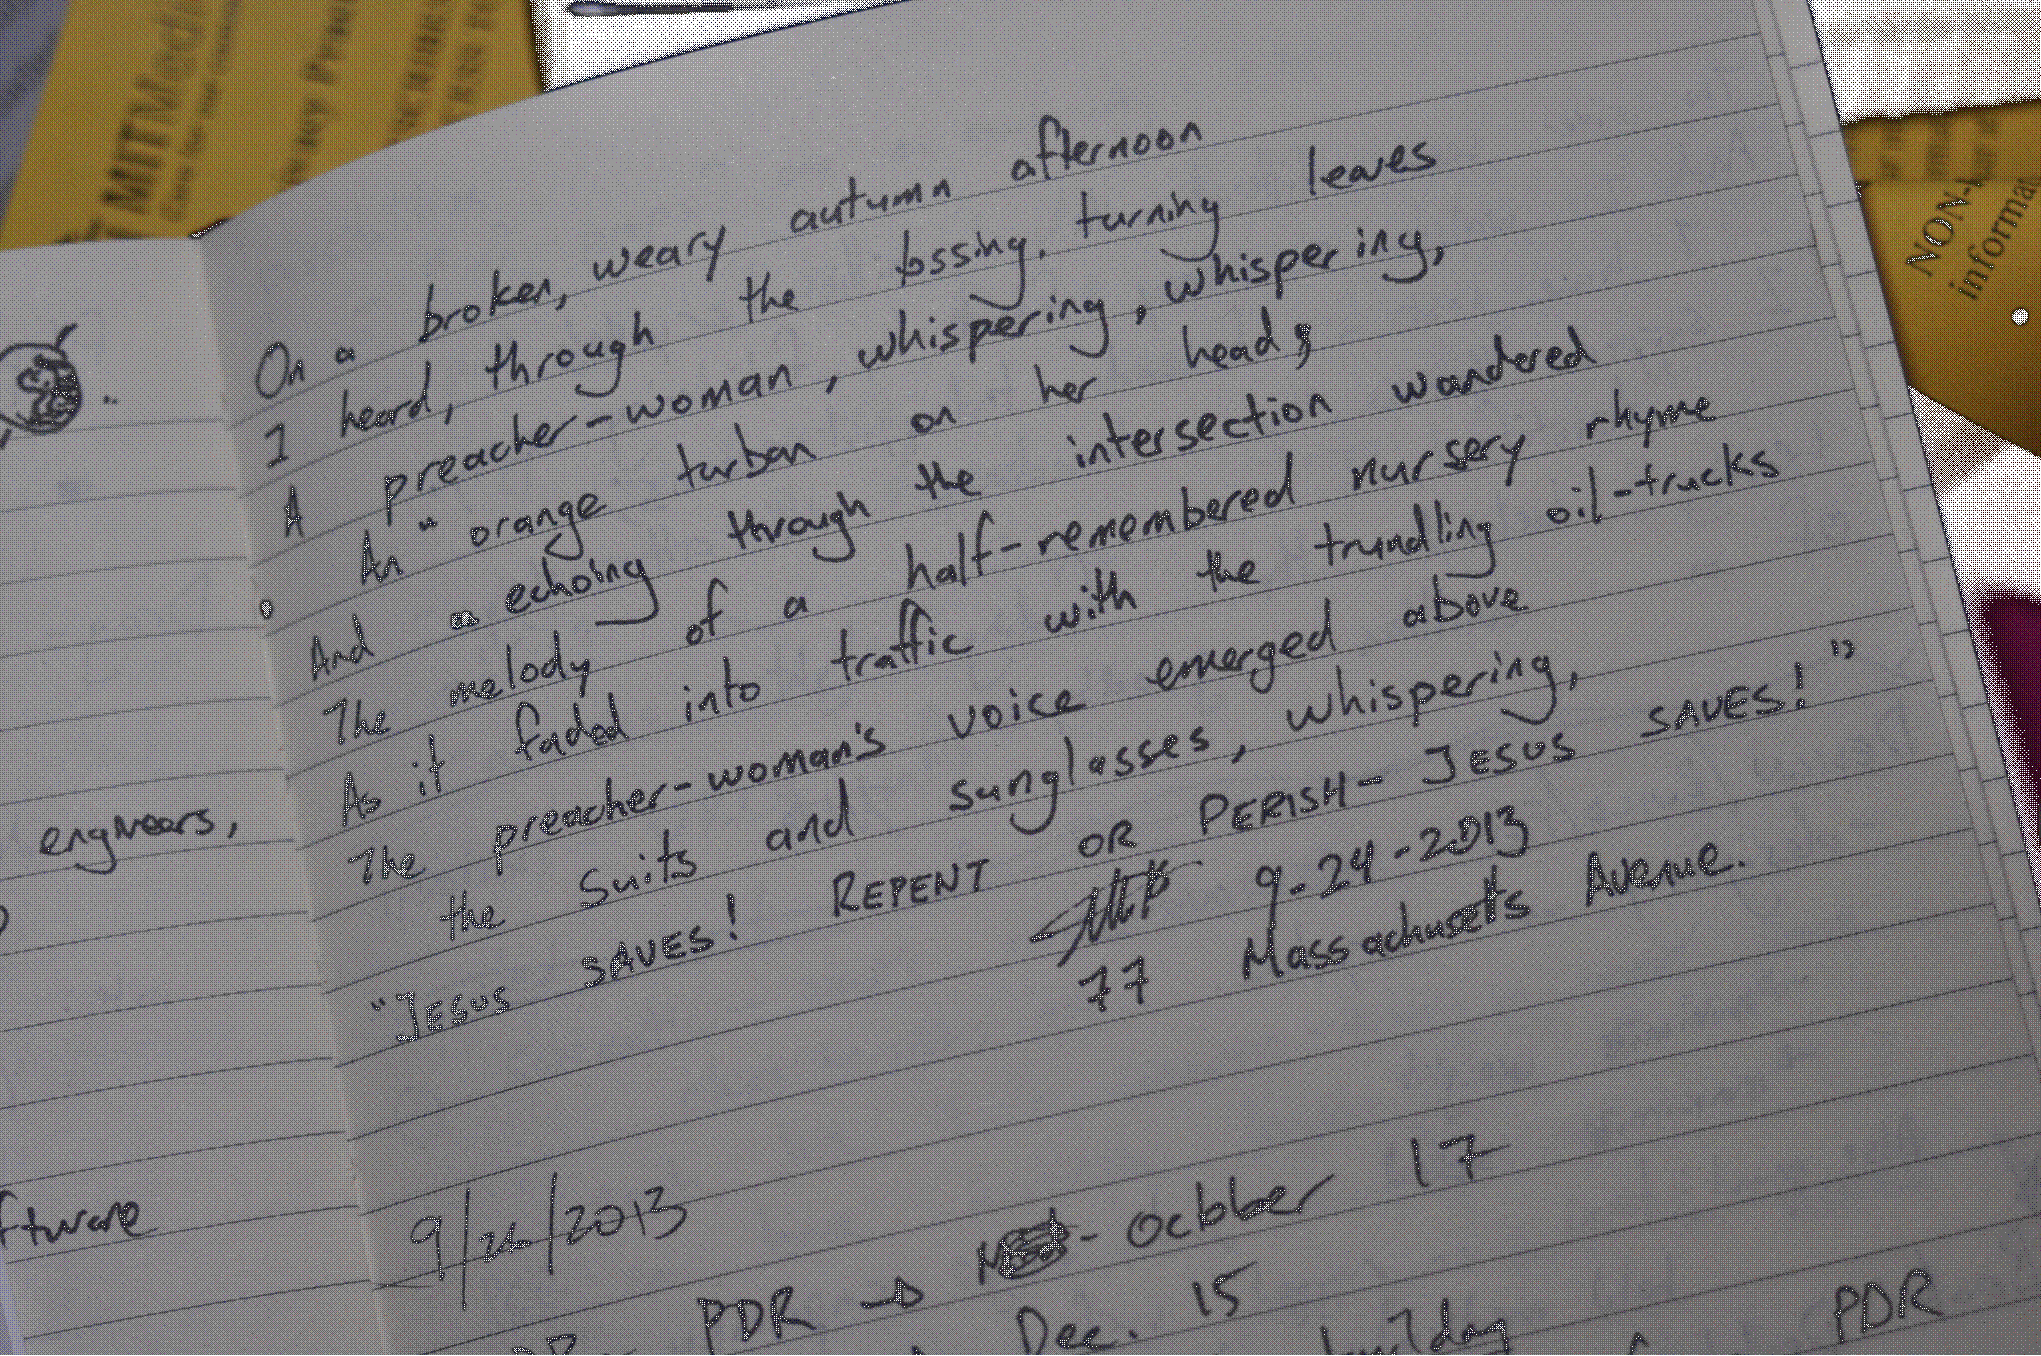 MIT Medic
NON-
informa
On a broken, weary autumn afternoon
I heard, through the tossing, turning leaves
A preacher-woman, whispering, whispering,
An " orange turban on her head;
And a echoing through the intersection wandered
The melody of a half-remembered nursery rhyme
As it faded into traffic with the trundling oil-trucks
The preacher-woman's voice emerged above
the suits and sunglasses, whispering,
"JESUS SAVES! REPENT OR PERISH- JESUS SAVES!"
9-24-2013
77 Massachusetts Avenue.
engineers,
ftware
9/24/2013
PDR → - October 17
Dec. 15
PDR